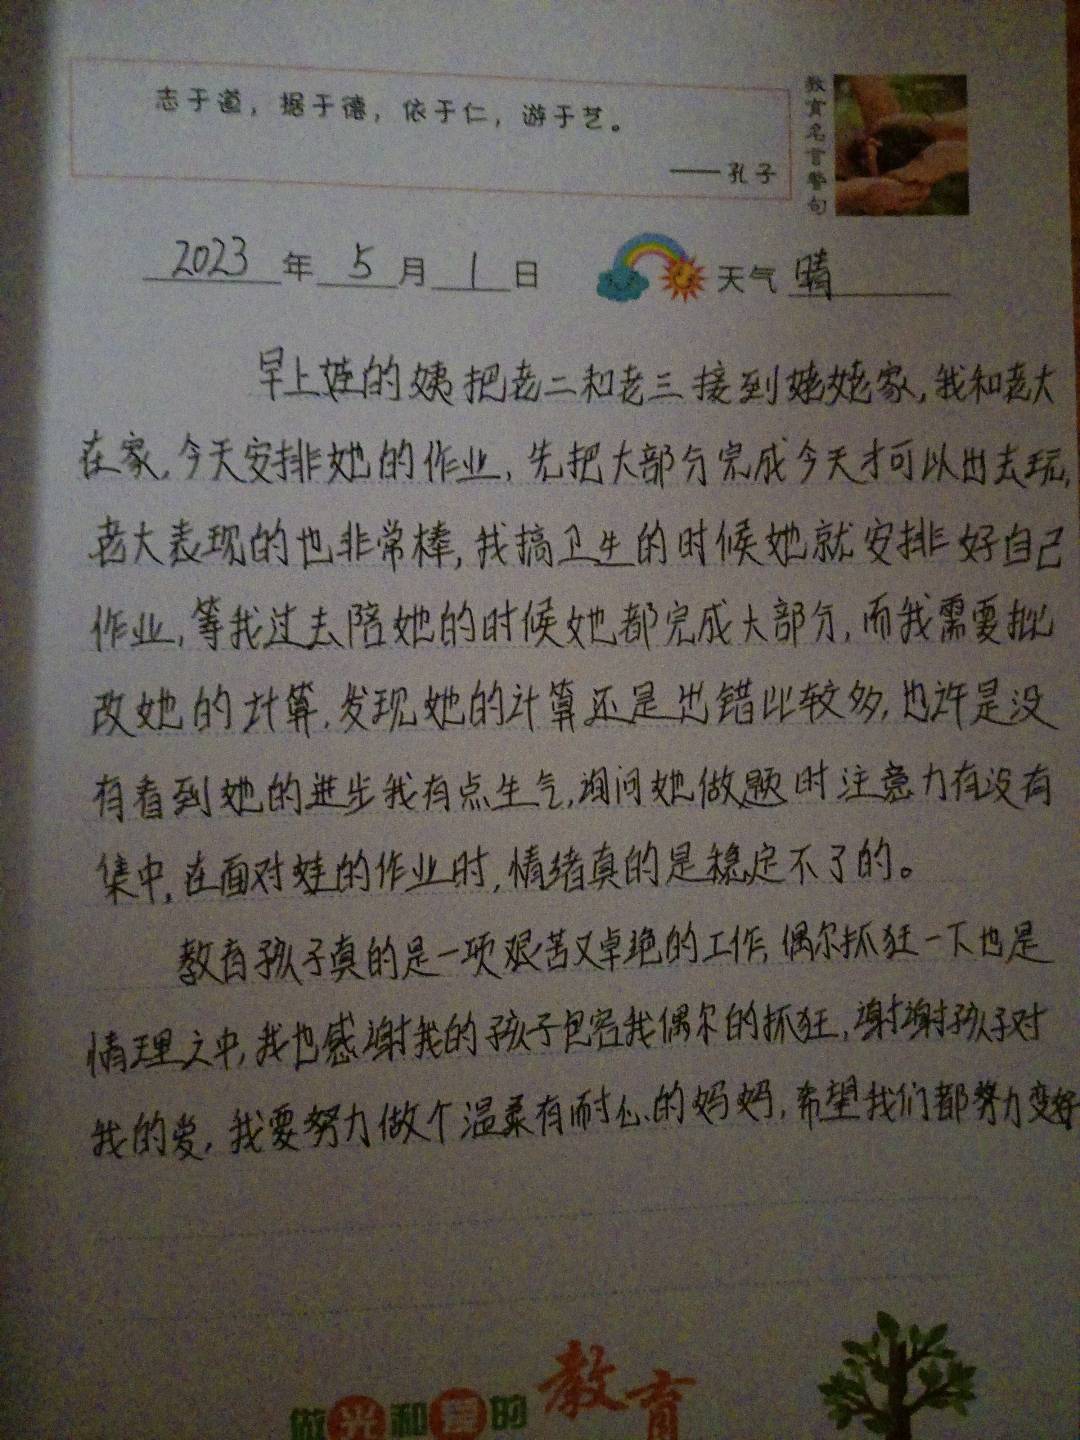 志于道，据于德，依于仁，游于艺。
——孔子
教育名言警句
2023年5月1日 天气 晴
早上娃的姨把老二和老三接到姥姥家，我和老大
在家，今天安排她的作业，先把大部分完成今天才可以出去玩，
老大表现的也非常棒，我搞卫生的时候她就安排好自己
作业，等我过去陪她的时候她都完成大部分，而我需要批
改她的计算，发现她的计算还是出错比较多，也许是没
有看到她的进步我有点生气，询问她做题时注意力有没有
集中，在面对娃的作业时，情绪真的是稳定不了的。
教育孩子真的是一项艰苦又卓绝的工作，偶尔抓狂一下也是
情理之中，我也感谢我的孩子包容我偶尔的抓狂，谢谢孩子对
我的爱，我要努力做个温柔有耐心的妈妈，希望我们都努力变好
做光和爱的教育